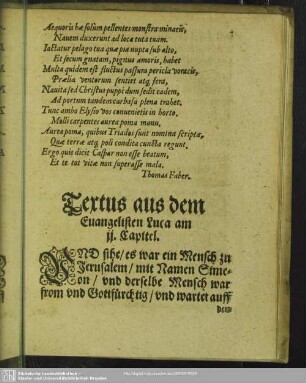 Aequoris hæ solùm pellentes monstra minacis,
Nauem duxerunt ad loca tuta tuam.
Iactatur pelago tua quæ pia nupta sub alto,
Et secum gnatam, pignus amoris, habet
Multa quidem est fluctus passura pericla voracis,
Prælia ventorum sentiet atq́; fera,
Nauita sed Christus puppi dum sedit eadem,
Ad portum tandem carbasa plena trahet.
Tunc ambo Elysio vos conuenietis in horto,
Molli carpentes aurea poma manu,
Aurea poma, quibus Triados sunt nomina scripta,
Quæ terræ atq́; poli condita cuncta regunt.
Ergo quis dicit Caspar non esse beatum,
Et te tot vitæ non superasse mala.
Thomas Faber.
Textus aus dem
Euangelisten Luca am
ij. Capitel.
VND sihe/ es war ein Mensch zu
Jerusalem/ mit Namen Sime-
on/ vnd derselbe Mensch war
from vnd Gottfürchtig/ vnd wartet auff
den